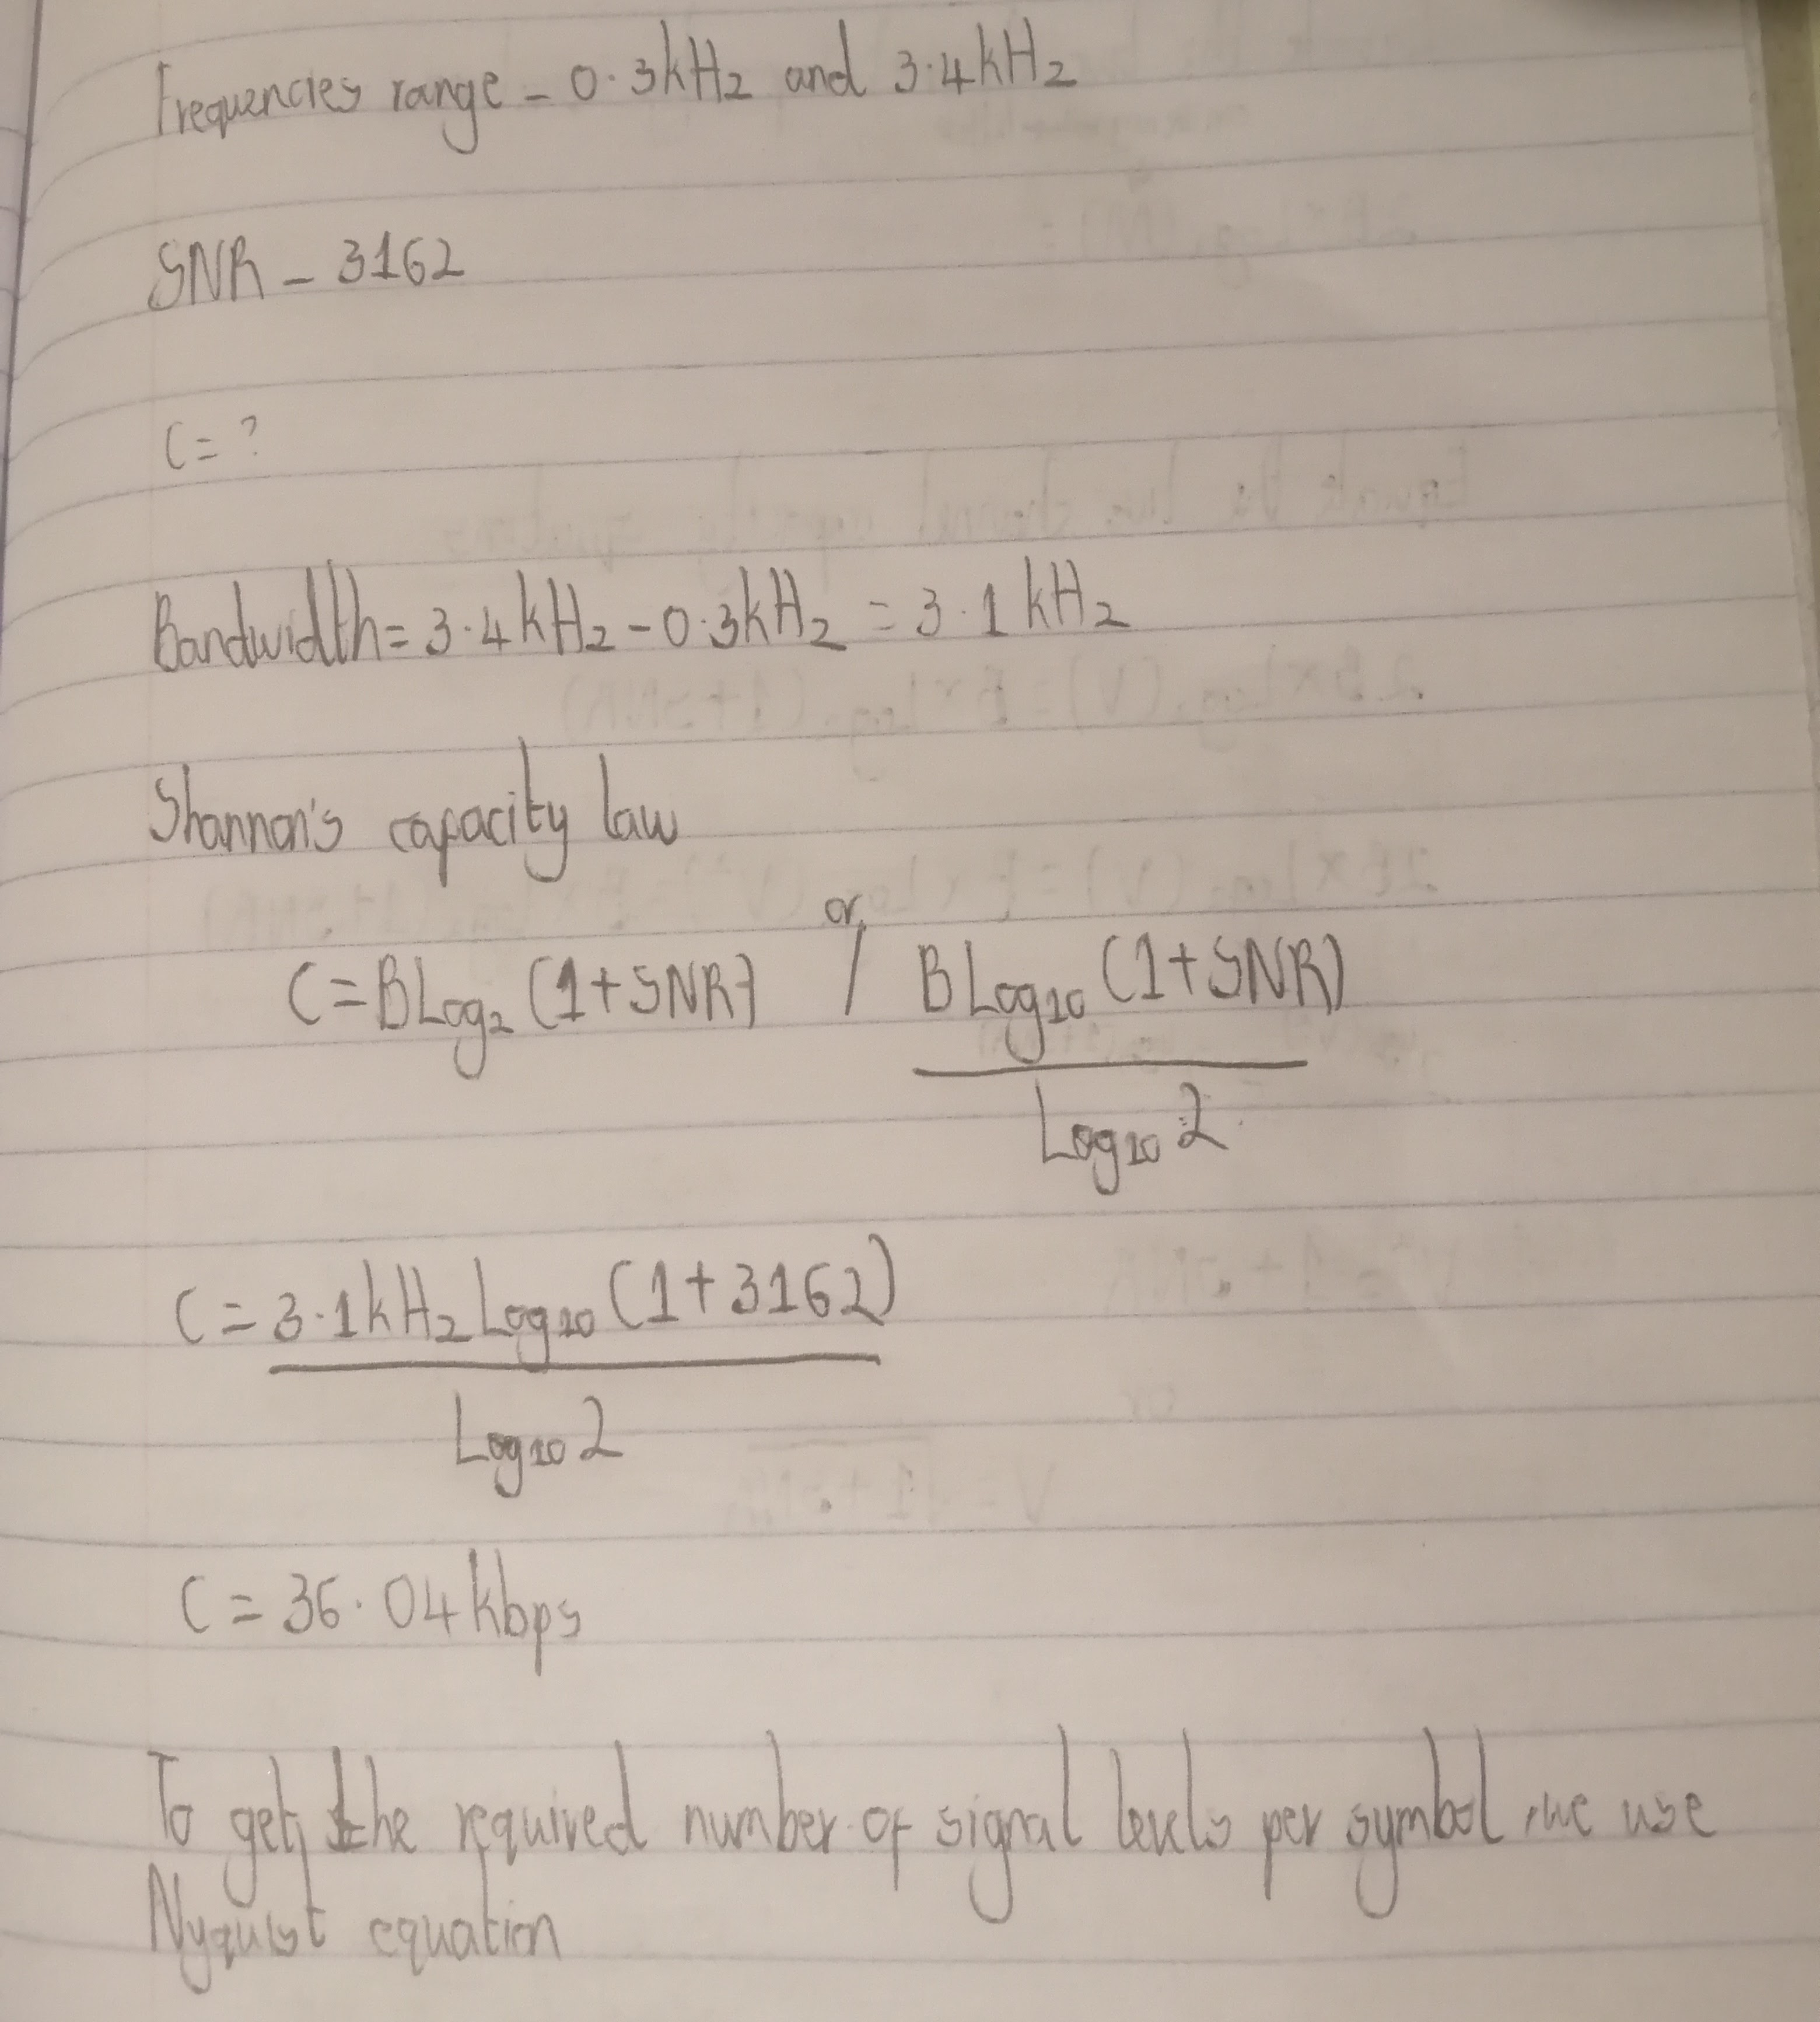 Frequencies range - 0.3kHz and 3.4kHz
SNR - 3162
C = ?
Bandwidth = 3.4kHz - 0.3kHz = 3.1 kHz
Shannon's capacity law
or
C = BLog₂ (1+SNR) / BLog₁₀ (1+SNR)
Log₁₀ 2
C = 3.1kHz Log₁₀ (1+3162)
Log₁₀ 2
C = 36.04kbps
To get the required number of signal levels per symbol, we use
Nyquist equation